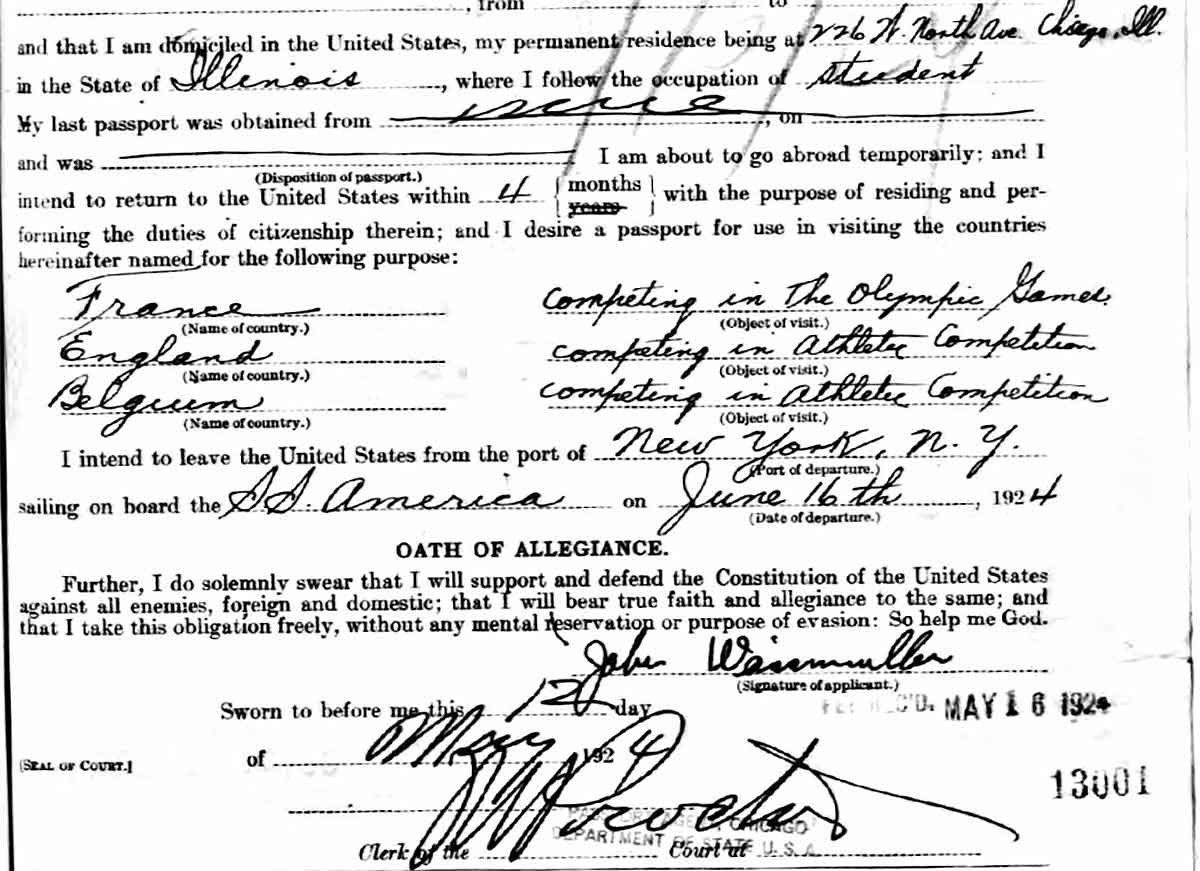 , from to
and that I am domiciled in the United States, my permanent residence being at 226 W. North Ave Chicago, Ill.
in the State of Illinois, where I follow the occupation of student
My last passport was obtained from none, on
and was I am about to go abroad temporarily; and I
(Disposition of passport.)
intend to return to the United States within 4 { months years } with the purpose of residing and per-
forming the duties of citizenship therein; and I desire a passport for use in visiting the countries
hereinafter named for the following purpose:
France competing in The Olympic Games.
(Name of country.) (Object of visit.)
England competing in Athletic Competition
(Name of country.) (Object of visit.)
Belgium competing in Athletic Competition
(Name of country.) (Object of visit.)
I intend to leave the United States from the port of New York, N. Y.
(Port of departure.)
sailing on board the SS. America on June 16th, 1924
(Date of departure.)
OATH OF ALLEGIANCE.
Further, I do solemnly swear that I will support and defend the Constitution of the United States
against all enemies, foreign and domestic; that I will bear true faith and allegiance to the same; and
that I take this obligation freely, without any mental reservation or purpose of evasion: So help me God.
John Weissmuller
(Signature of applicant.)
Sworn to before me this 12 day
REC'D. MAY 16 1924
of May 1924
[SEAL OF COURT.]
13001
Proctor
PASSPORT AGENCY, CHICAGO
DEPARTMENT OF STATE U. S. A.
Clerk of the Court at